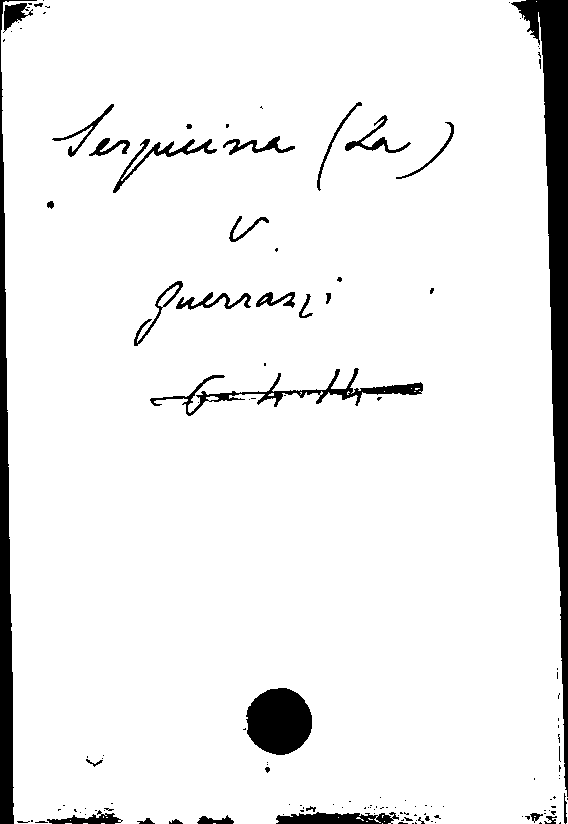 Serpicina (La)
v.
Guerrazzi